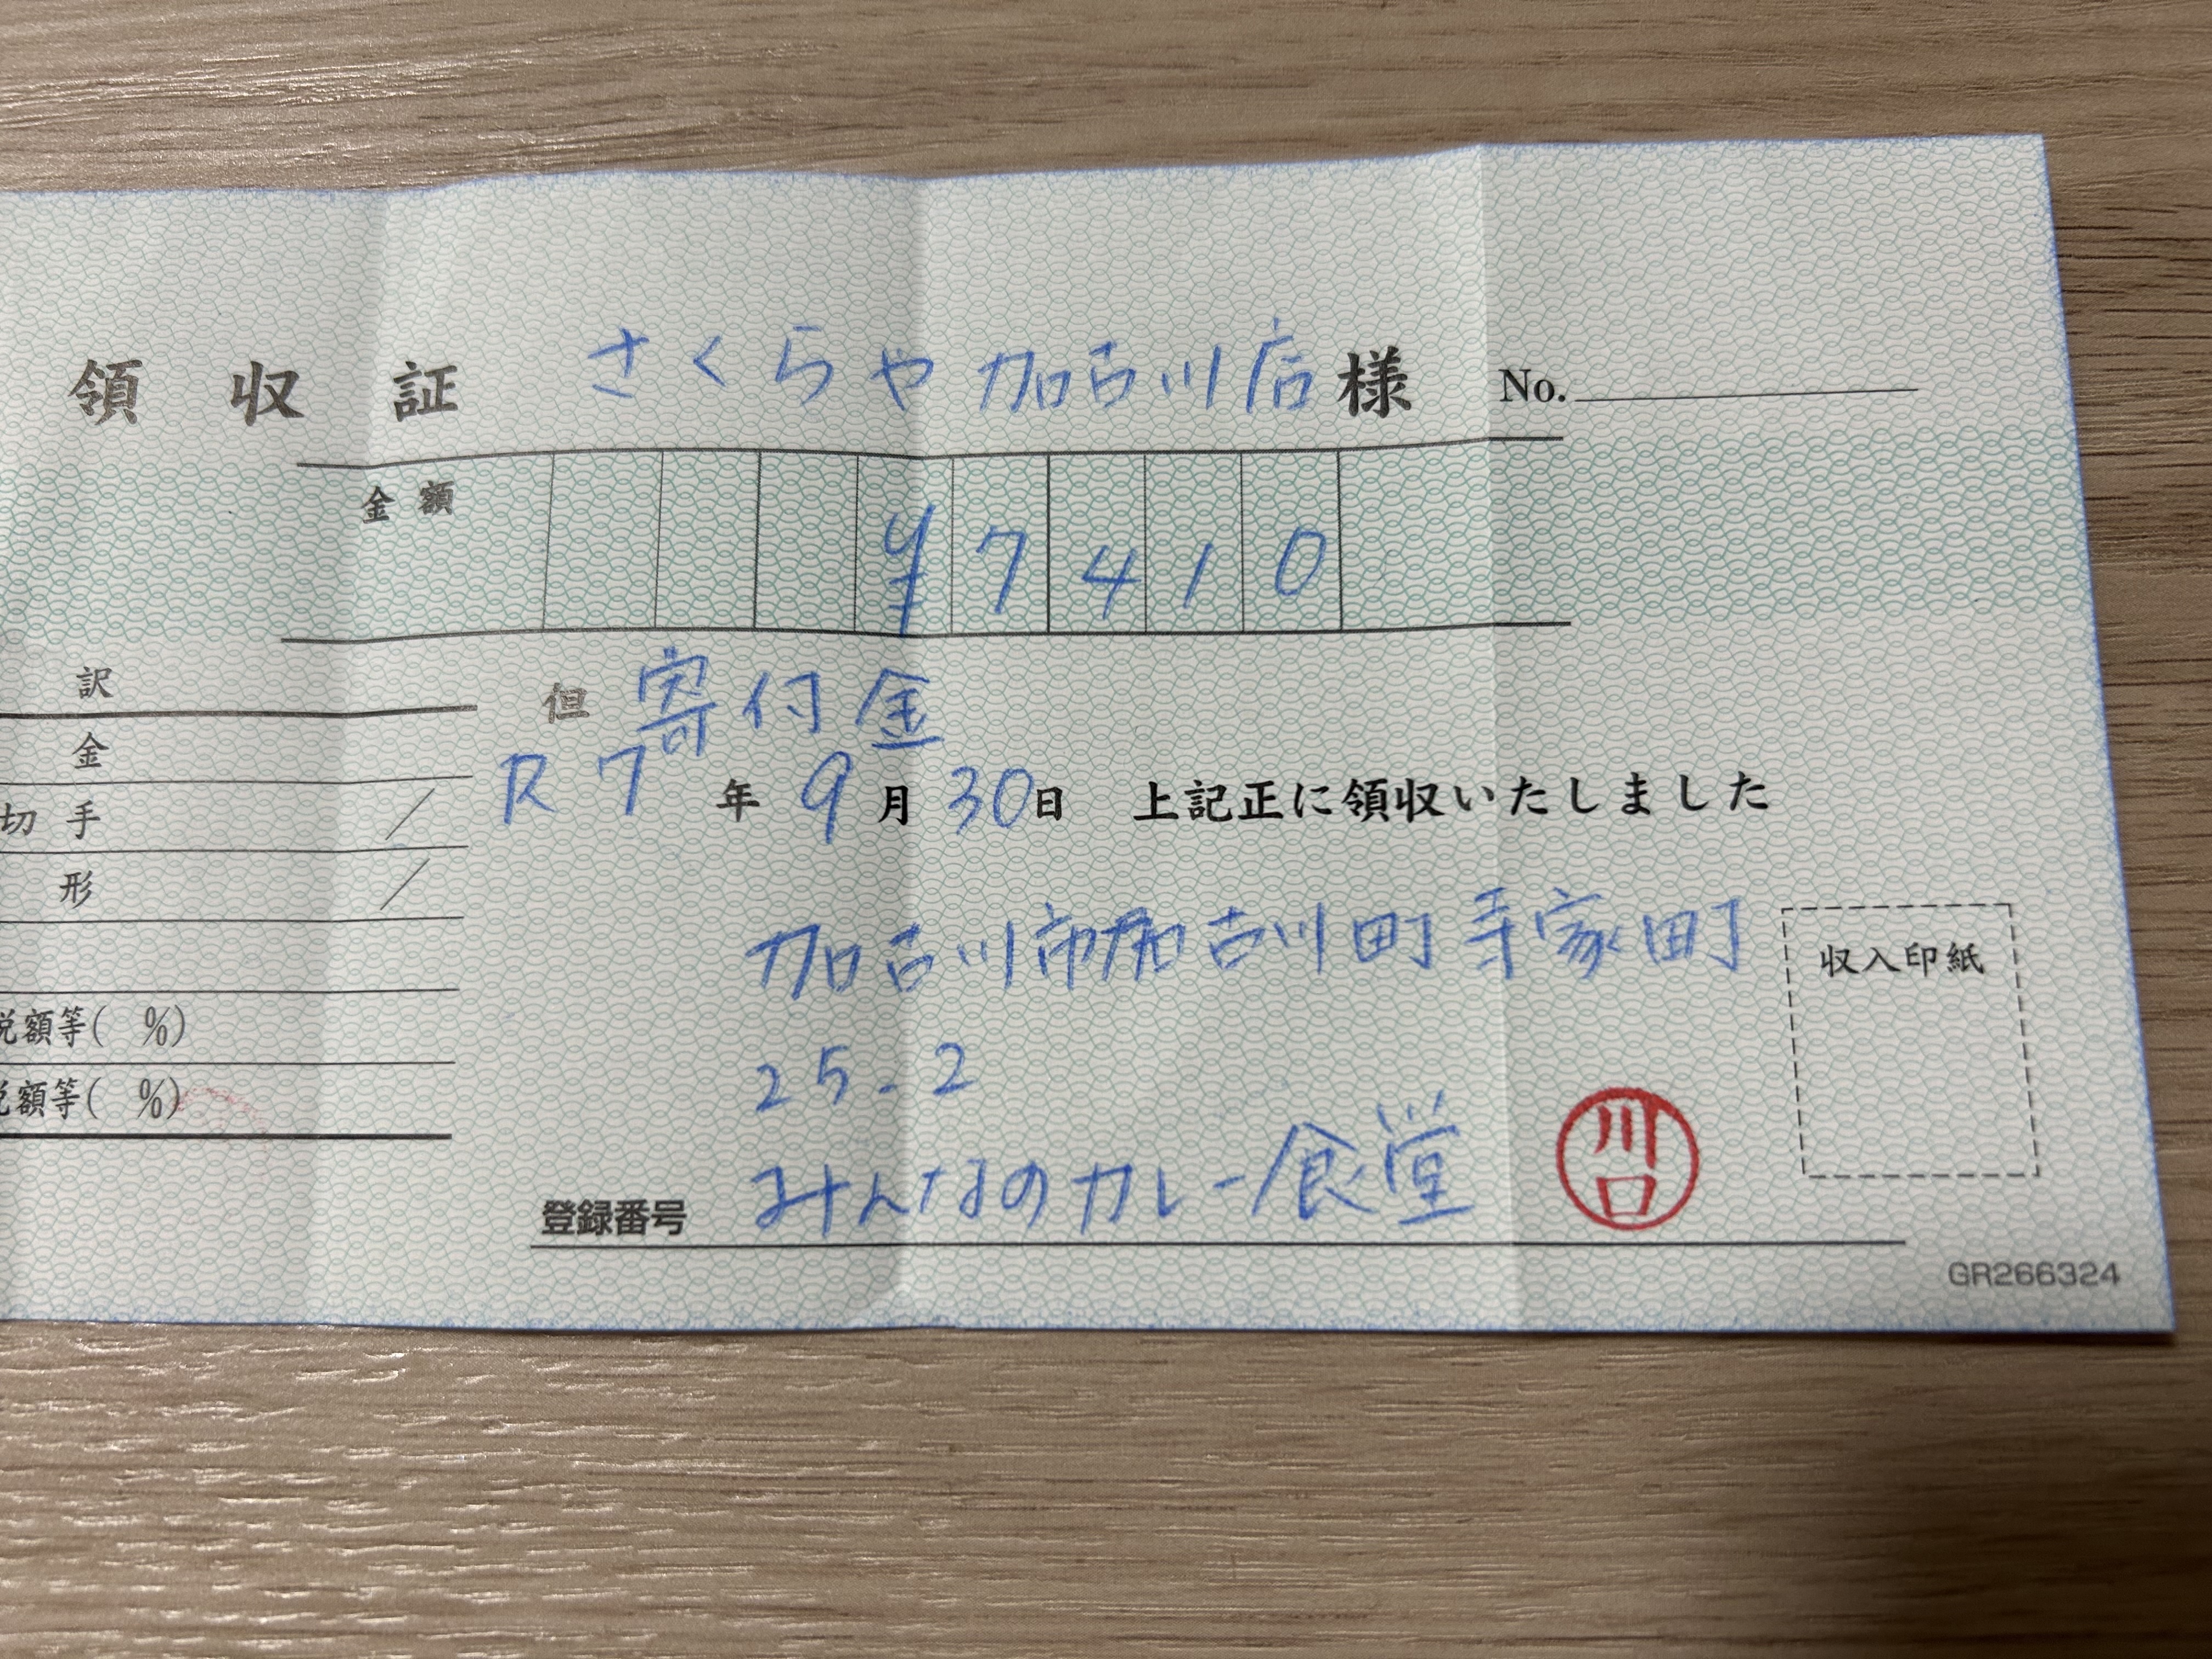 領収証 さくらや加古川店 様 No.
金額 ¥7410
訳
金
切手 /
形 /
税額等( %)
税額等( %)
但 寄付金
R7年9月30日 上記正に領収いたしました
加古川市加古川町寺家町
25-2
みんなのカレー食堂 川口
登録番号
収入印紙
GR266324